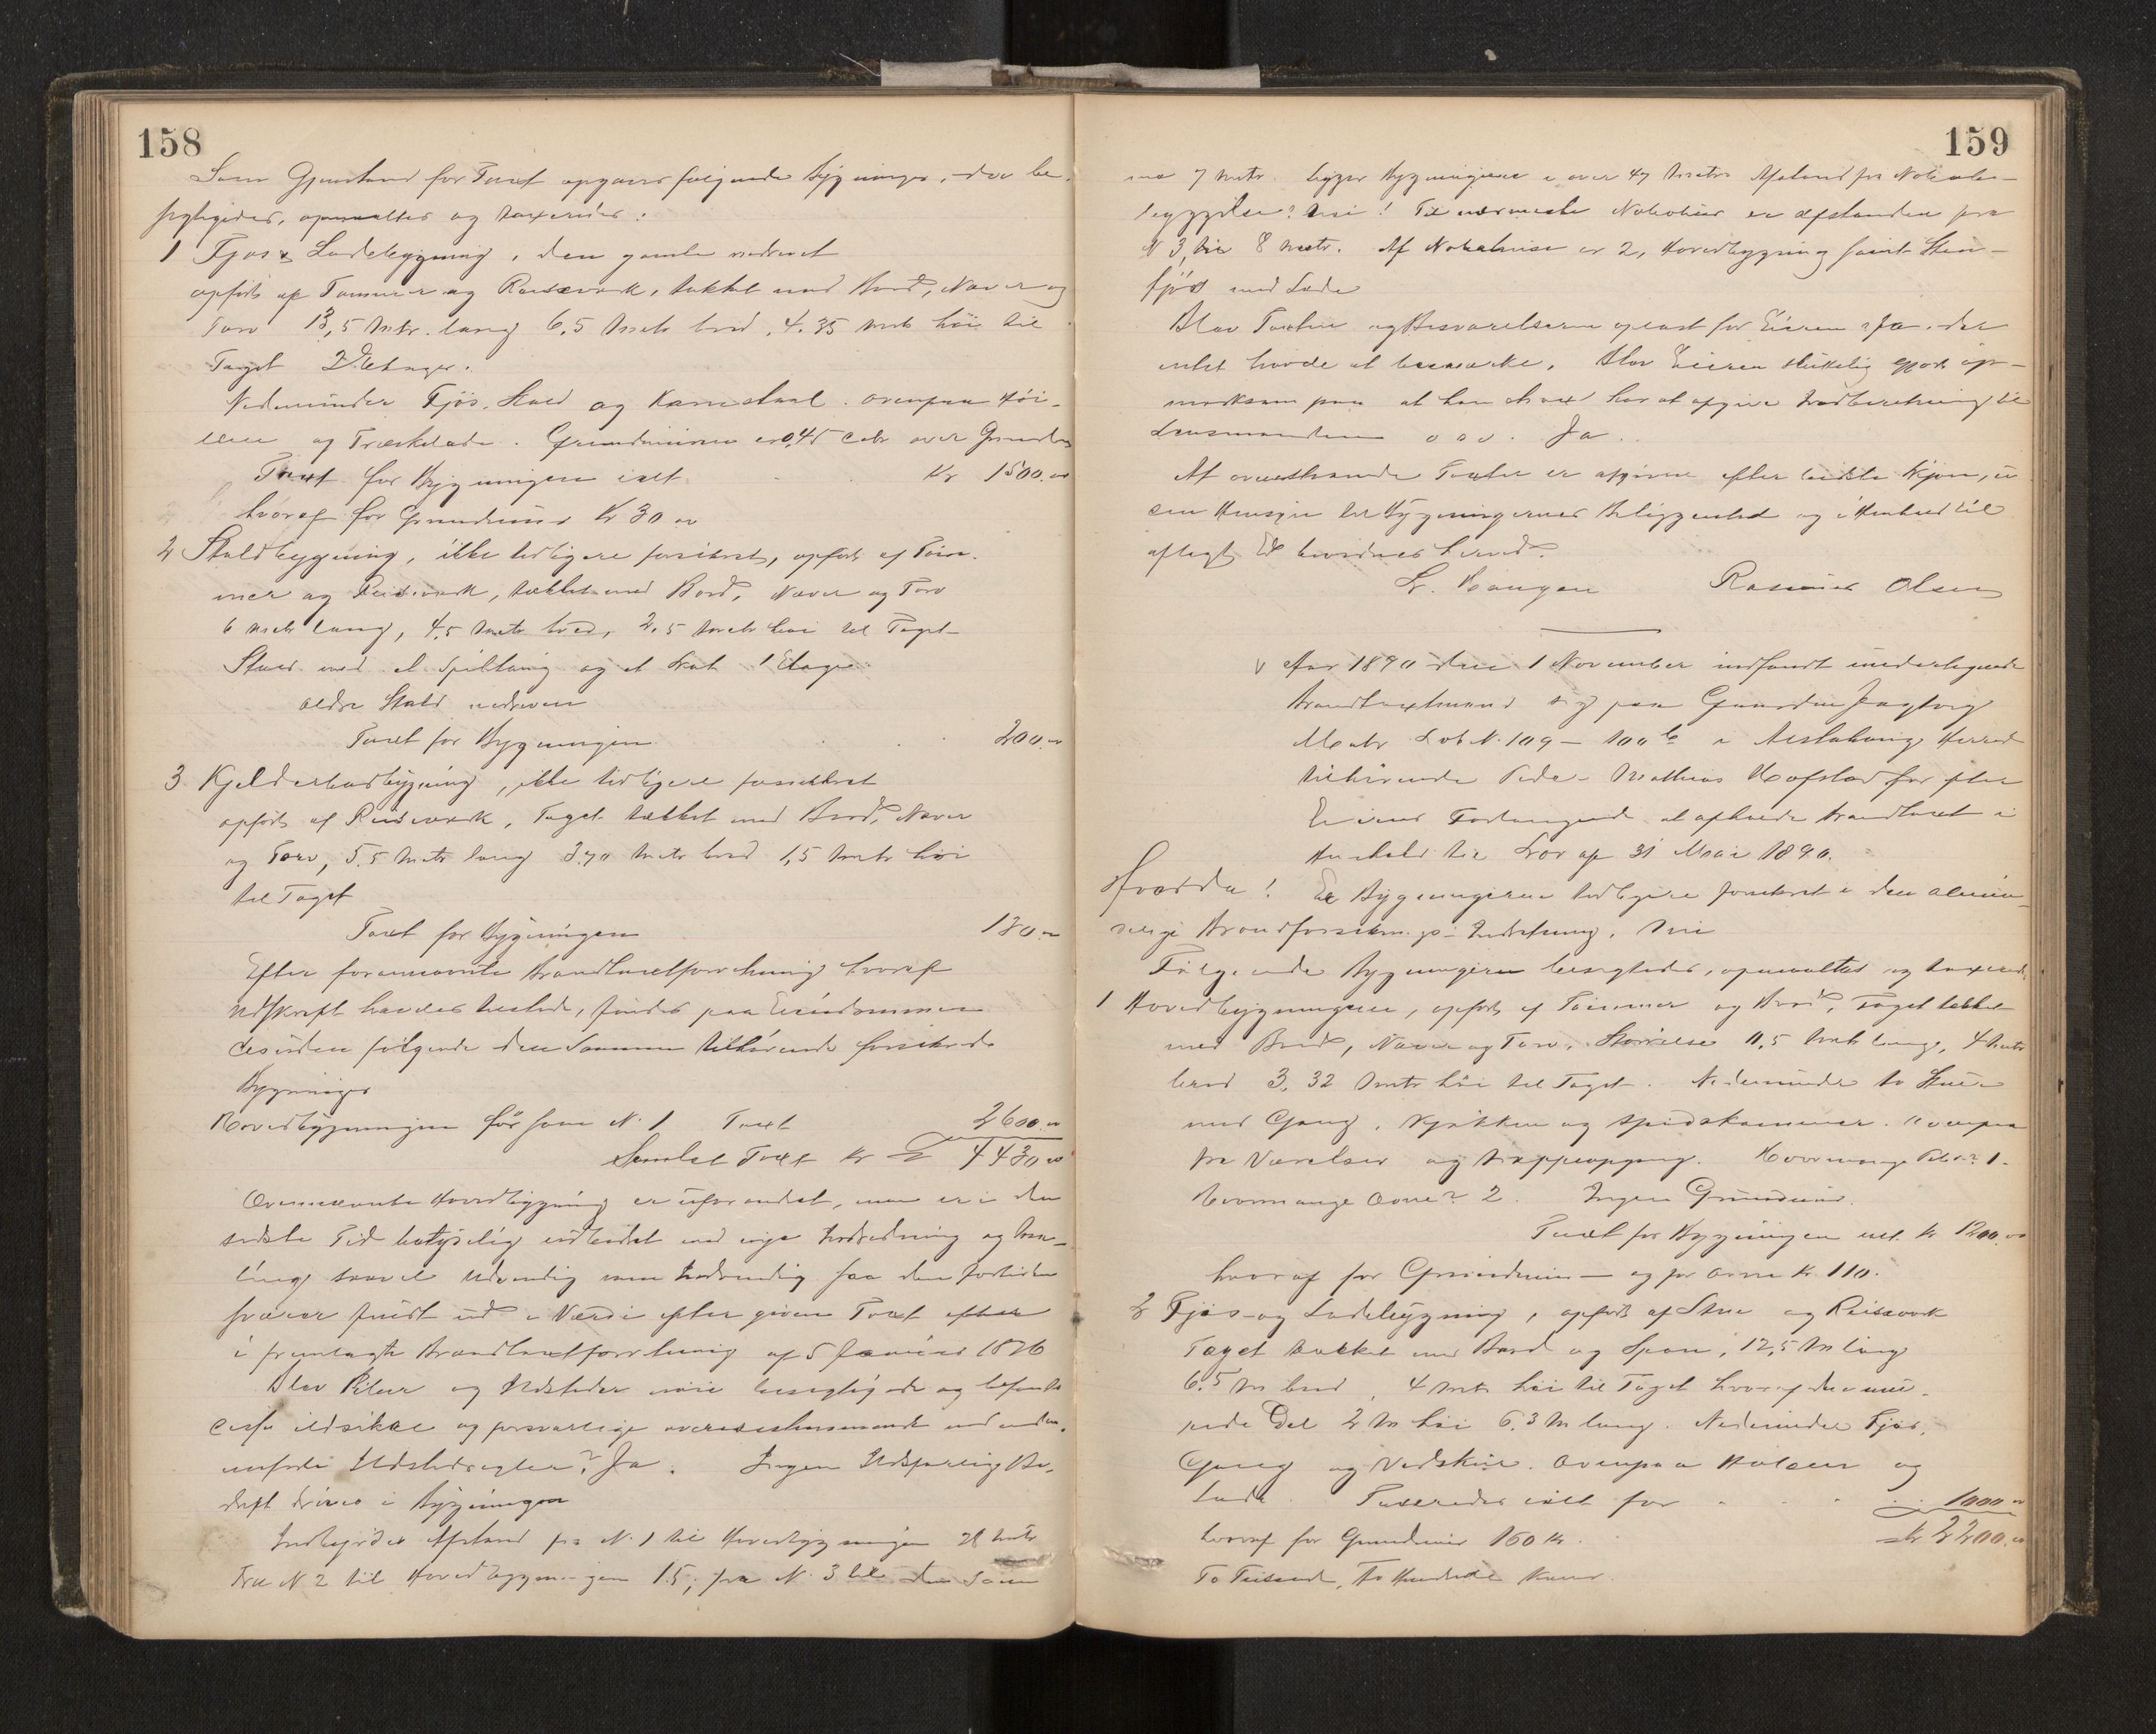 158
Som Gjenstand for Taxt opgaves følgende Bygninger, der be-
sigtigedes, opmaaltes og taxeredes:
1 Fjøs & Ladebygning, den gamle nedrevet
opført af Tømmer og Reisværk, tækket med Bord, Næver og
Torv 13,5 Mtr. lang 6,5 Metr bred, 4.35 Metr høi til
Taget 2 Etager.
Nedenunder Fjøs, Stald og ovenpaa Høi-
og Træskelade. Grundmuren er 0,45 over Grunden
Taxt for Bygningen ialt Kr 1500.00
hvoraf for Grundmur Kr 30 00
2 Staldbygning, ikke tidligere forsikret, opført af Tøm-
mer og Reisværk, tækket med Bord, Næver og Torv
6 Metr lang, 4,5 Metr bred, 2,5 Metr høi til Taget
Stald med et Spiltaug og et 1 Etage
ældre Stald nedreven
Taxt for Bygningen 200.00
3 Kjelderbodbygning, ikke tidligere forsikret
opført af Reisværk, Taget tækket med Bord, Næver
og Torv, 5.5 Metr lang 3.70 Metr bred 1,5 Metr høi
til Taget
Taxt for Bygningen 130.00
Efter forennævnte Brandtaxtforretning hvoraf
Udskrift havdes tilstede, findes paa Eiendommen
desuden følgende den Samme tilhørende forsikrede
Bygninger
Hovedbygningen før som N. 1 Taxt 2600.00
Samlet Taxt Kr 4430 00
Ovennævnte Hovedbygning er uforandret, men er i den
sidste Tid betydelig udbedret med nye Indredning og Ma-
ling saavel udvendig som indvendig saa den fortiden
svarer fuldt ud i Værdi efter given Taxt efter
i fremlagte Brandtaxtforretning af 5 Januar 1876
Blev Piber og Ildsteder nøie besigtigede og befandtes
disse ildsikre og forsvarlige overensstemmende med
Ildstedregler? Ja. Ingen Ildsfarlig Be-
drift drives i Bygningen
Indbyrdes Afstand fra N. 1 til Hovedbygningen 28 Metr
Fra N 2 til Hovedbygningen 15, fra N. 3 til den Sam-
159
me 7 Metr. ligger Bygningerne i over 47 Metrs Afstand fra Nabobe-
byggelse? Nei! Til nærmeste Nabohus er afstanden fra
N 3, til 8 Metr. Af Nabohuse er 2, Hovedbygning samt Sten-
fjøs med Lade
Blev Taxten og Besvarelserne oplæst for Eieren Ja. der
intet havde at bemærke. Blev Eieren skikkelig gjort op-
mærksom paa at han har at afgive Indberetning til
Lensmanden o s v. Ja.
At ovenstaaende Taxter er afgivne efter bedste Skjøn, u-
den Hensyn til Bygningernes Beliggenhed og i Henhold til
aflagt Ed bevidnes herved.
L. Haugen Rasmus Olsen
Aar 1890 den 1 November indfandt undertegnede
Brandtaxtmænd sig paa Gaarden
Matr Løb N. 109 – 100 b i Herred
tilhørende Peder Mathias Hofstad for efter
Eierens Forlangende at afholde Brandtaxt i
Henhold til Lov af 31 Mai 1890.
Er Bygningerne tidligere forsikret i den almin-
delige Brandforsikrings-Indretning. Nei
Følgende Bygninger besigtedes, opmaaltes og taxeredes
1 Hovedbygningen, opført af Tømmer og Bord, Taget tækket
med Bord, Næver og Torv. Størrelse 11,5 Metr lang, 4 Metr
bred 3,32 Metr høi til Taget. Nedenunder to Stuer
med Gang, Kjøkken og Spidskammer. Ovenpaa
tre Værelser og trappeopgang. Hvormange Piber? 1.
Hvormange Ovne? 2. Ingen Grundmur.
Taxt for Bygningen ialt Kr 1200.00
hvoraf for Grundmur — og for Ovne Kr. 110.
2 Fjøs og Ladebygning, opført af Stene og Reisværk
Taget tækket med Bord og Spon, 12,5 M lang
6,5 M bred, 4 Metr høi til Taget hvoraf den mu-
rede Del 2 M høi 6,3 M lang. Nedenunder Fjøs,
Gang og Vedskur. Ovenpaa og
Lade. Taxeredes ialt for 1000 00
hvoraf for Grundmur 160 Kr. Kr 2200.00
To Tusinde, To Hundrede Kroner.